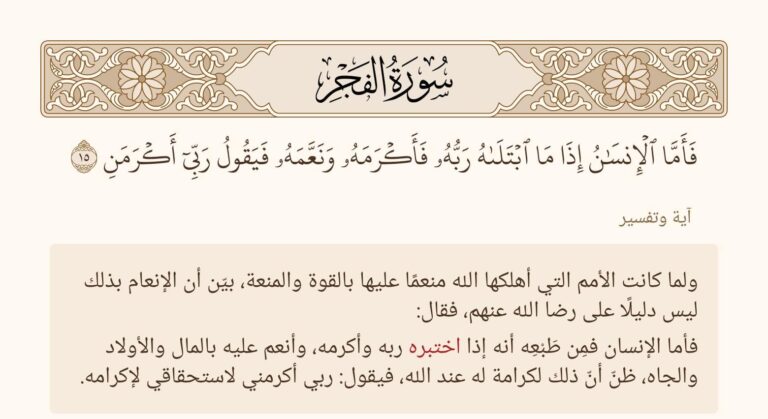 سُورَةُ الفَجْرِ
فَأَمَّا ٱلْإِنسَٰنُ إِذَا مَا ٱبْتَلَىٰهُ رَبُّهُۥ فَأَكْرَمَهُۥ وَنَعَّمَهُۥ فَيَقُولُ رَبِّىٓ أَكْرَمَنِ ١٥
آية وتفسير
ولما كانت الأمم التي أهلكها الله منعمًا عليها بالقوة والمنعة، بيّن أن الإنعام بذلك
ليس دليلًا على رضا الله عنهم، فقال:
فأما الإنسان فمِن طَبْعِه أنه إذا اختبره ربه وأكرمه، وأنعم عليه بالمال والأولاد
والجاه، ظنّ أنّ ذلك لكرامة له عند الله، فيقول: ربي أكرمني لاستحقاقي لإكرامه.